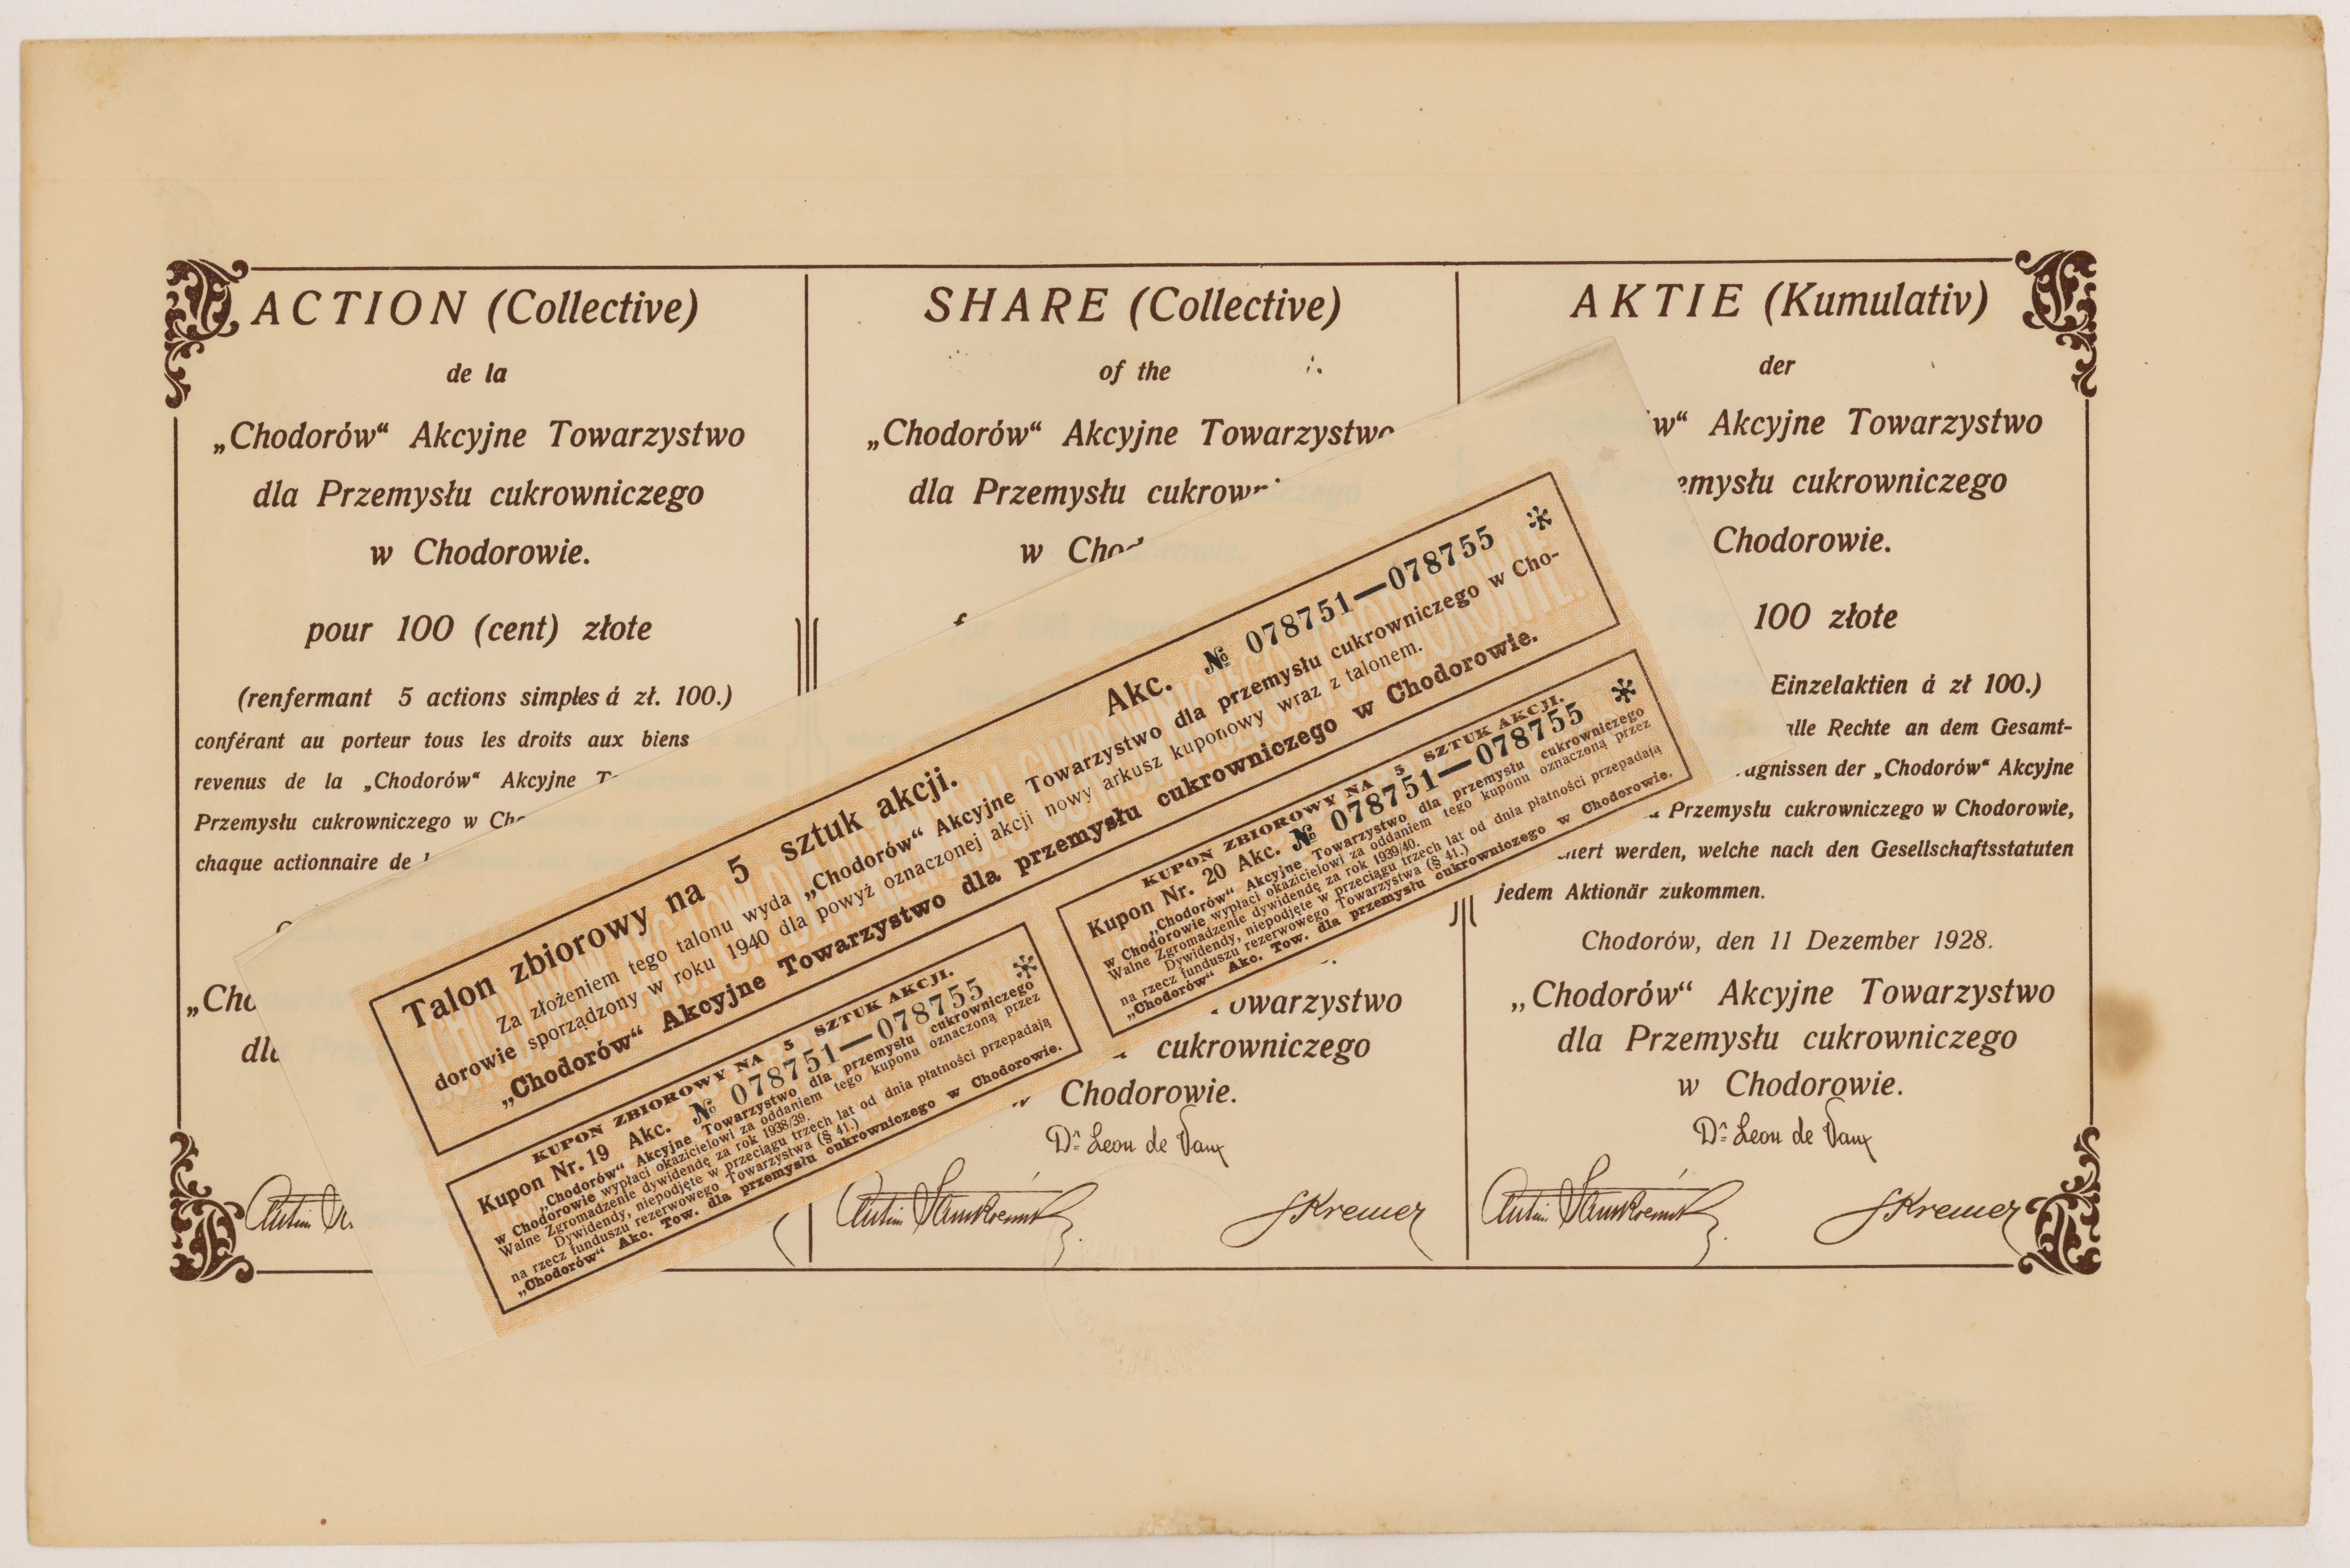 ACTION (Collective)
de la
„Chodorów“ Akcyjne Towarzystwo
dla Przemysłu cukrowniczego
w Chodorowie.
pour 100 (cent) złote
(renfermant 5 actions simples á zł. 100.)
conférant au porteur tous les droits aux biens
revenus de la „Chodorów“ Akcyjne
Przemysłu cukrowniczego w
chaque actionnaire de
SHARE (Collective)
of the
„Chodorów“ Akcyjne Towarzystwo
dla Przemysłu
w
Towarzystwo
cukrowniczego
Chodorowie.
Dr Leon de Vaux
SKremer
AKTIE (Kumulativ)
der
Akcyjne Towarzystwo
cukrowniczego
Chodorowie.
100 złote
Einzelaktien á zł 100.)
alle Rechte an dem Gesamt-
der „Chodorów“ Akcyjne
Przemysłu cukrowniczego w Chodorowie,
werden, welche nach den Gesellschaftsstatuten
jedem Aktionär zukommen.
Chodorów, den 11 Dezember 1928.
„Chodorów“ Akcyjne Towarzystwo
dla Przemysłu cukrowniczego
w Chodorowie.
Dr Leon de Vaux
SKremer
Talon zbiorowy na 5 sztuk akcji. Akc. № 078751—078755 *
Za złożeniem tego talonu wyda „Chodorów“ Akcyjne Towarzystwo dla przemysłu cukrowniczego w Cho-
dorowie sporządzony w roku 1940 dla powyż oznaczonej akcji nowy arkusz kuponowy wraz z talonem.
„Chodorów“ Akcyjne Towarzystwo dla przemysłu cukrowniczego w Chodorowie.
KUPON ZBIOROWY NA 5 SZTUK AKCJI.
Kupon Nr. 19 Akc. № 078751—078755 *
„Chodorów“ Akcyjne Towarzystwo dla przemysłu cukrowniczego
w Chodorowie wypłaci okazicielowi za oddaniem tego kuponu oznaczoną przez
Walne Zgromadzenie dywidendę za rok 1938/39.
Dywidendy, niepodjęte w przeciągu trzech lat od dnia płatności przepadają
na rzecz funduszu rezerwowego Towarzystwa (§ 41.)
„Chodorów“ Akc. Tow. dla przemysłu cukrowniczego w Chodorowie.
KUPON ZBIOROWY NA 5 SZTUK AKCJI.
Kupon Nr. 20 Akc. № 078751—078755 *
„Chodorów“ Akcyjne Towarzystwo dla przemysłu cukrowniczego
w Chodorowie wypłaci okazicielowi za oddaniem tego kuponu oznaczoną przez
Walne Zgromadzenie dywidendę za rok 1939/40.
Dywidendy, niepodjęte w przeciągu trzech lat od dnia płatności przepadają
na rzecz funduszu rezerwowego Towarzystwa (§ 41.)
„Chodorów“ Akc. Tow. dla przemysłu cukrowniczego w Chodorowie.